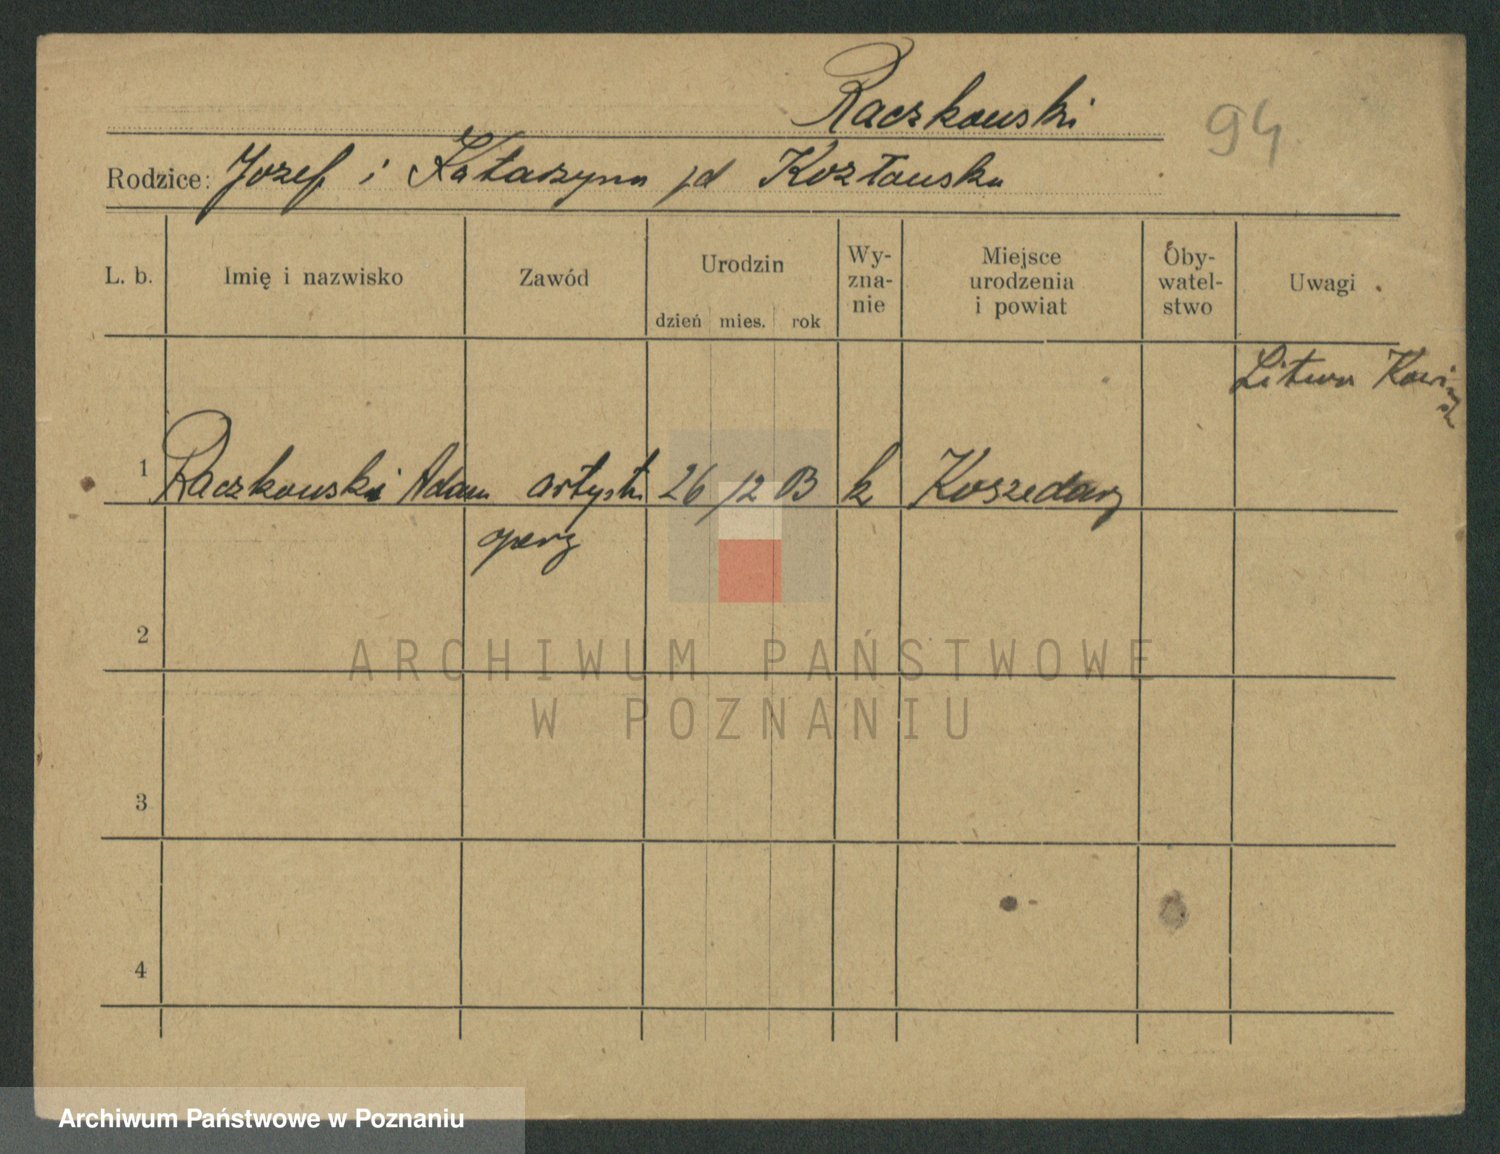 Raczkowski
94
Rodzice: Jozef i Katarzyna jd Kozłowska
L. b. Imię i nazwisko Zawód Urodzin dzień mies. rok Wy-zna-nie Miejsce urodzenia i powiat Oby-watel-stwo Uwagi
Litwa
1 Raczkowski Adam artysta 26 12 03 k Koszedary
opery
2
3
4
ARCHIWUM PAŃSTWOWE
W POZNANIU
Archiwum Państwowe w Poznaniu